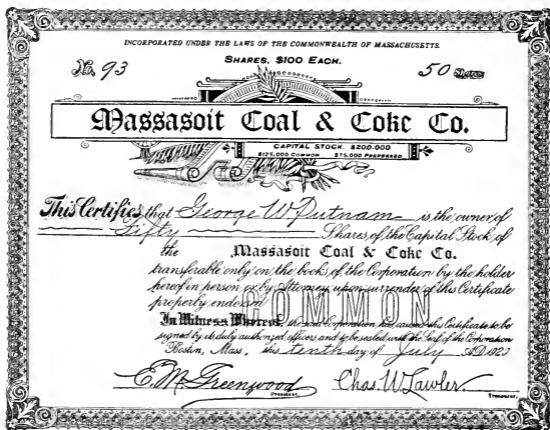 INCORPORATED UNDER THE LAWS OF THE COMMONWEALTH OF MASSACHUSETTS.
No. 93 SHARES, $100 EACH. 50 Shares
Massasoit Coal & Coke Co.
CAPITAL STOCK. $200.000
$125,000 COMMON $75,000 PREFERRED
This Certifies that George W Putnam is the owner of
Fifty Shares of the Capital Stock of
the Massasoit Coal & Coke Co.
transferable only on the books of the Corporation by the holder
hereof in person or by Attorney upon surrender of this Certificate
properly endorsed
COMMON
In Witness Whereof, the said Corporation has caused this Certificate to be
signed by its duly authorized officers and to be sealed with the Seal of the Corporation
Boston, Mass, this tenth day of July A.D. 192
E. M. Greenwood Chas. W Lawler
President. Treasurer.